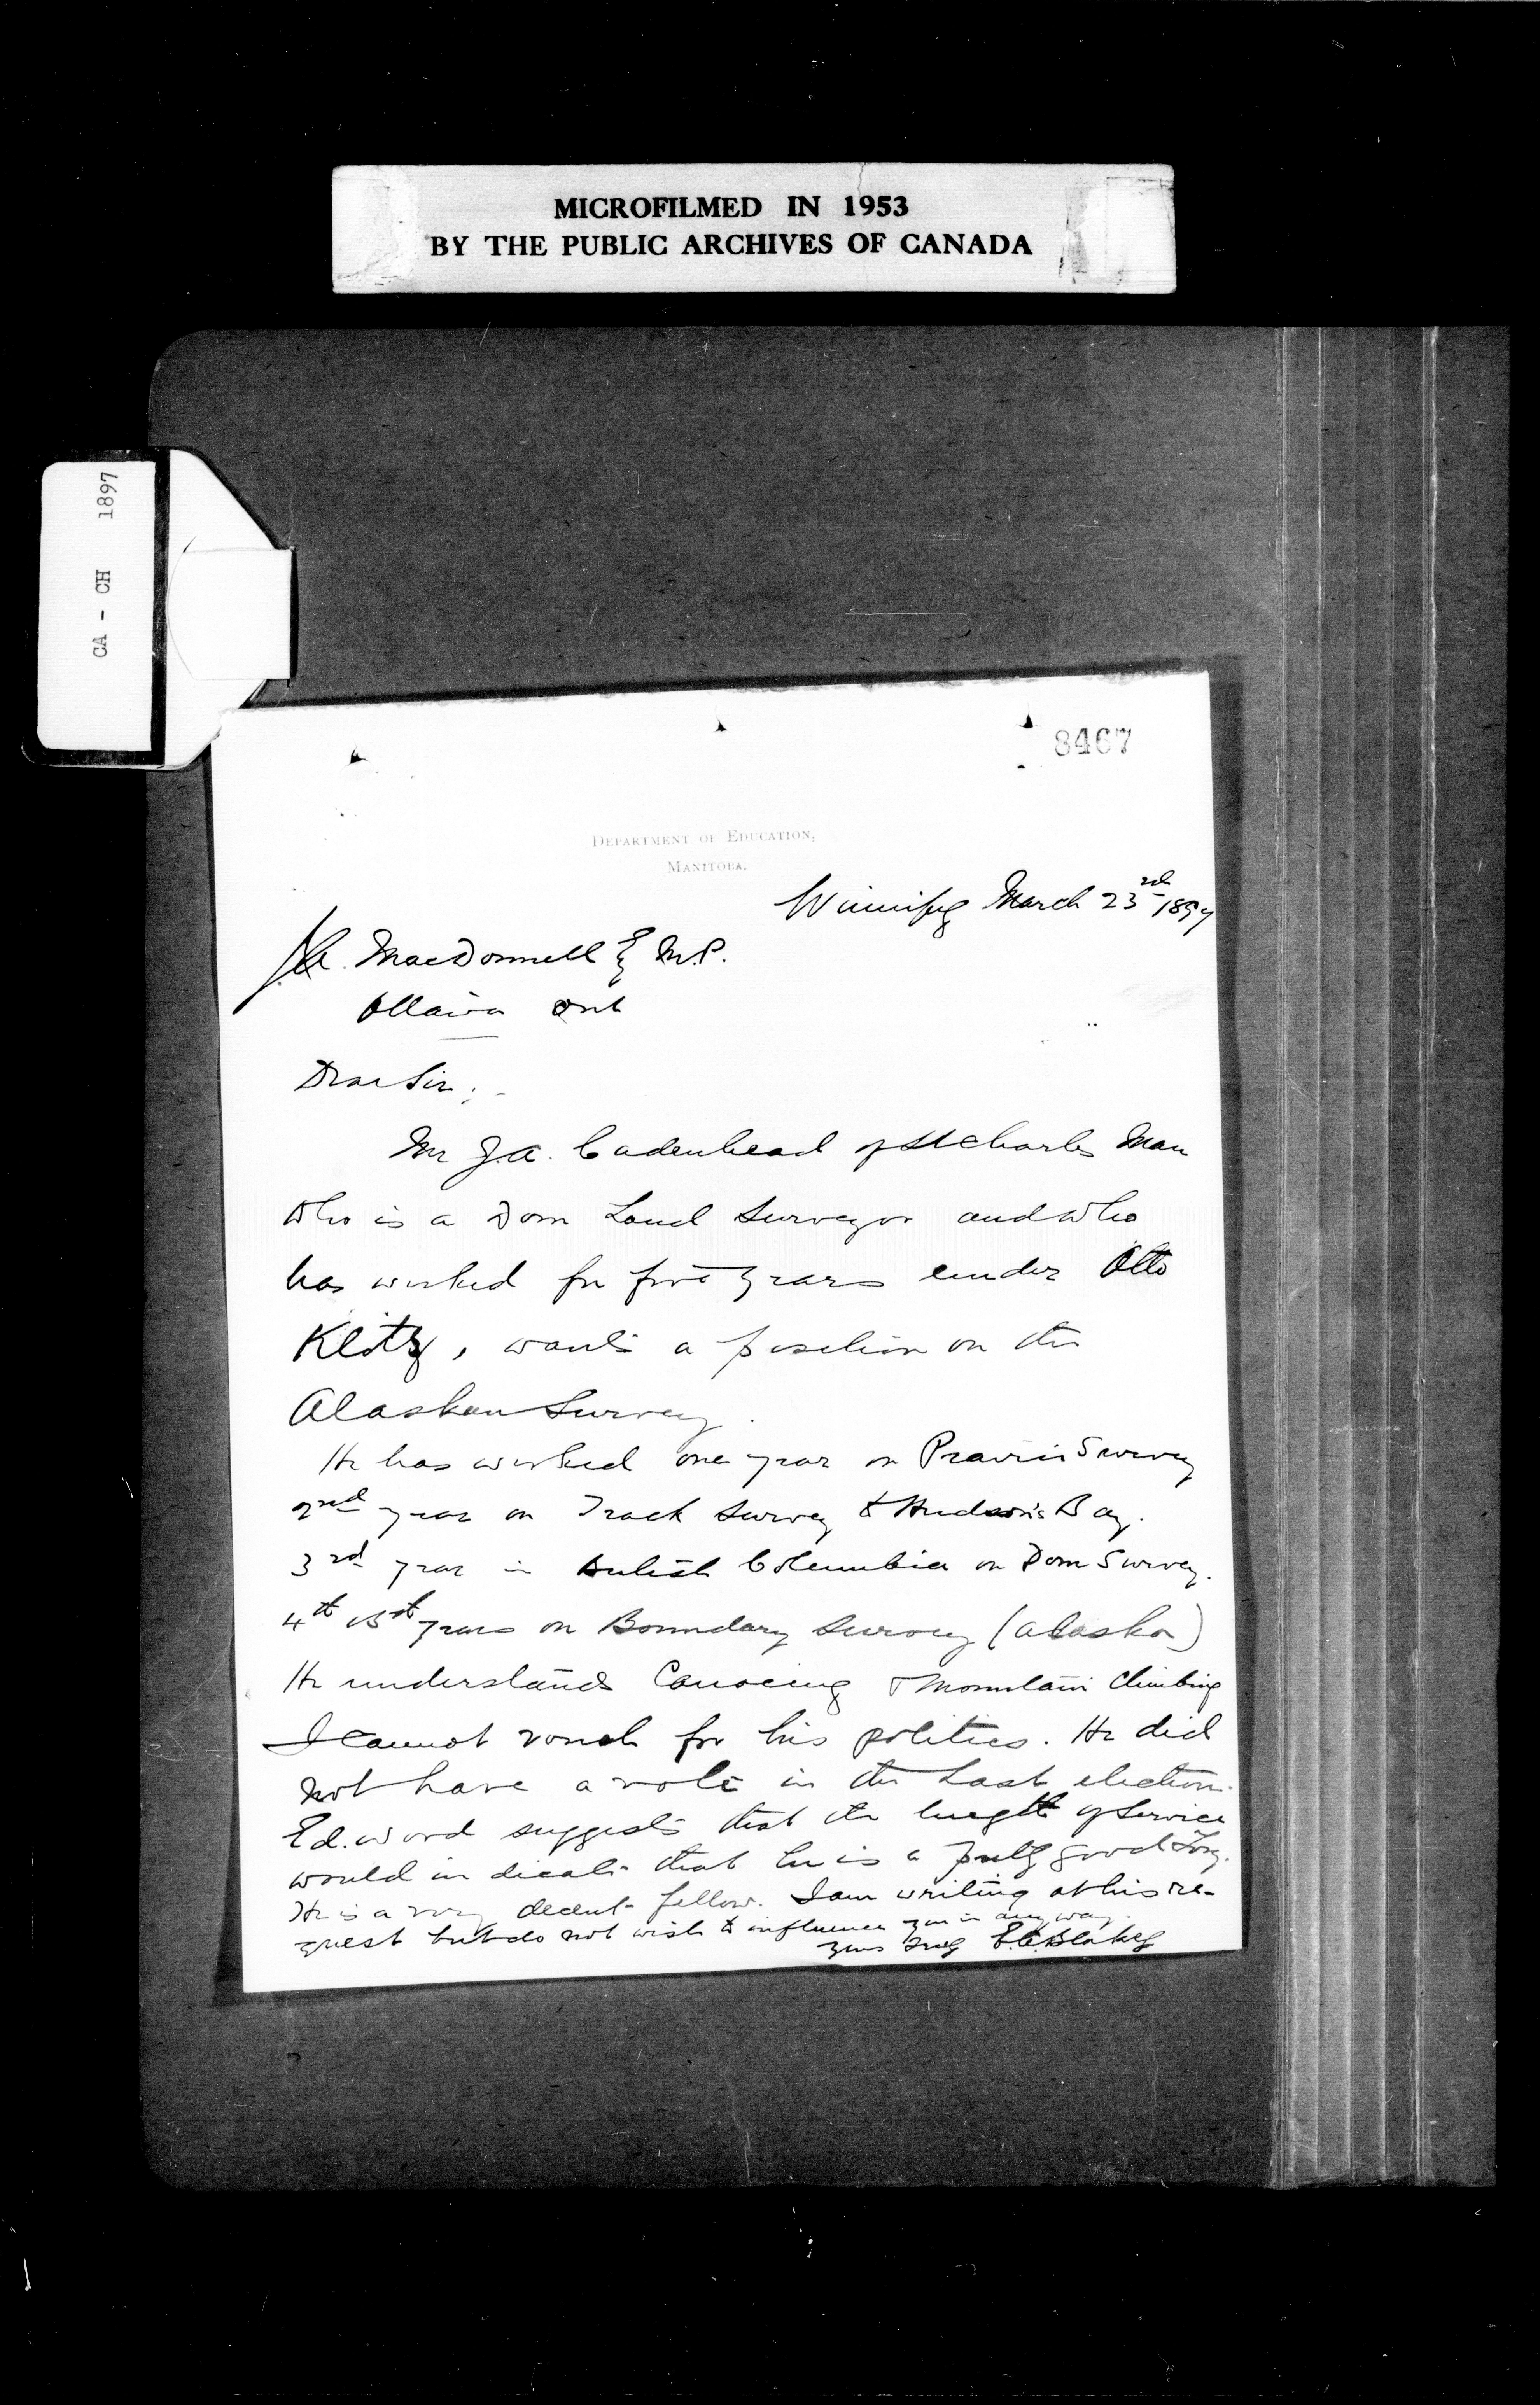 MICROFILMED IN 1953
BY THE PUBLIC ARCHIVES OF CANADA
CA - CH 1897
8467
DEPARTMENT OF EDUCATION,
MANITOBA.
Winnipeg March 23rd 1897
J.A. MacDonnell Esq M.P.
Ottawa Ont
Dear Sir;-
Mr J.A. Cadenhead of St Charles Man
who is a Dom Land Surveyor and who
has worked for five years under Otto
Klotz, wants a position on the
Alaskan Survey.
He has worked one year on Prairie Survey
2nd year on Track Survey to Hudson's Bay.
3rd year in British Columbia on Dom Survey.
4th & 5th years on Boundary Survey (Alaska)
He understands Canoeing & Mountain Climbing
I cannot vouch for his politics. He did
not have a vote in the last election.
Ed. Word suggests that the length of service
would indicate that he is a pretty good Tory.
He is a very decent fellow. I am writing at his re-
quest but do not wish to influence you in any way.
Yours truly E.A. Blakey